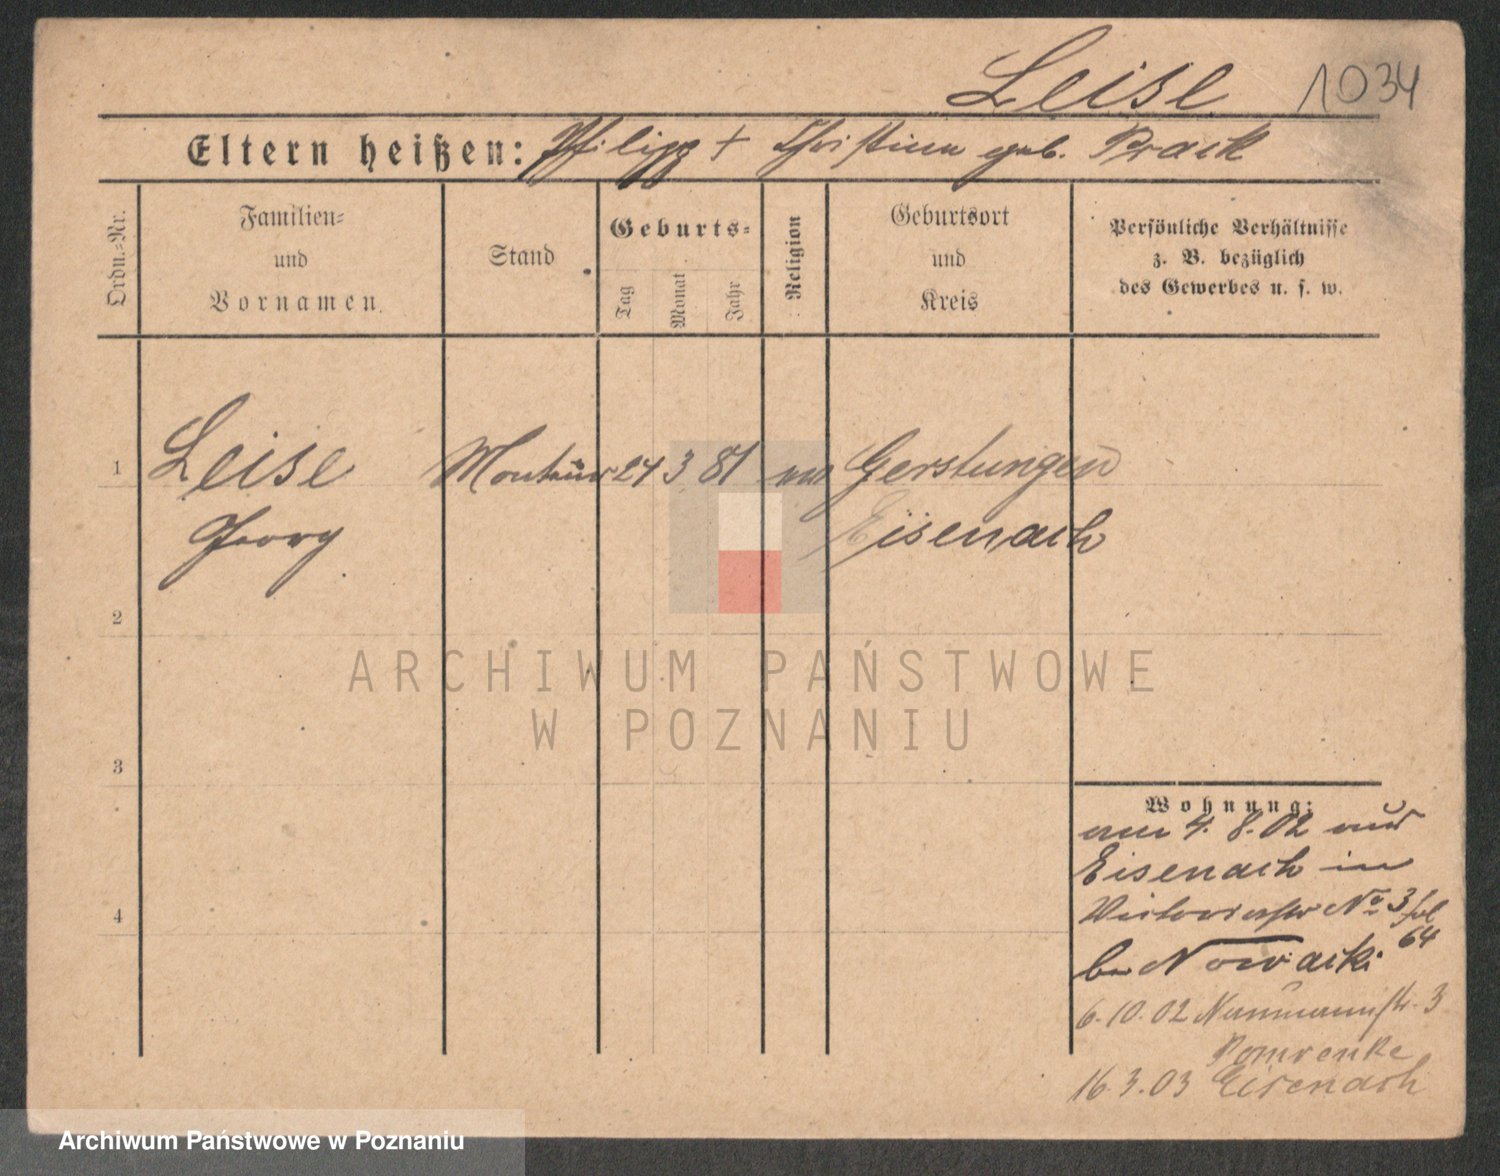 Leise 1034
Eltern heißen: Philipp + Christina geb. Prack
Ordn.-Nr.
Familien-
und
Vornamen.
Stand
Geburts-
Tag
Monat
Jahr
Religion
Geburtsort
und
Kreis
Persönliche Verhältnisse
z. B. bezüglich
des Gewerbes u. s. w.
1 Leise Monteur 24 3 81 Gerstungen
Georg Eisenach
2
ARCHIWUM PAŃSTWOWE
W POZNANIU
3
Wohnung:
4. 8. 02 aus
Eisenach in
Victoriastr No 3
64
4
bei Nowacki
6.10.02 Naumannstr. 3
Pomrenke
16.3.03 Eisenach
Archiwum Państwowe w Poznaniu